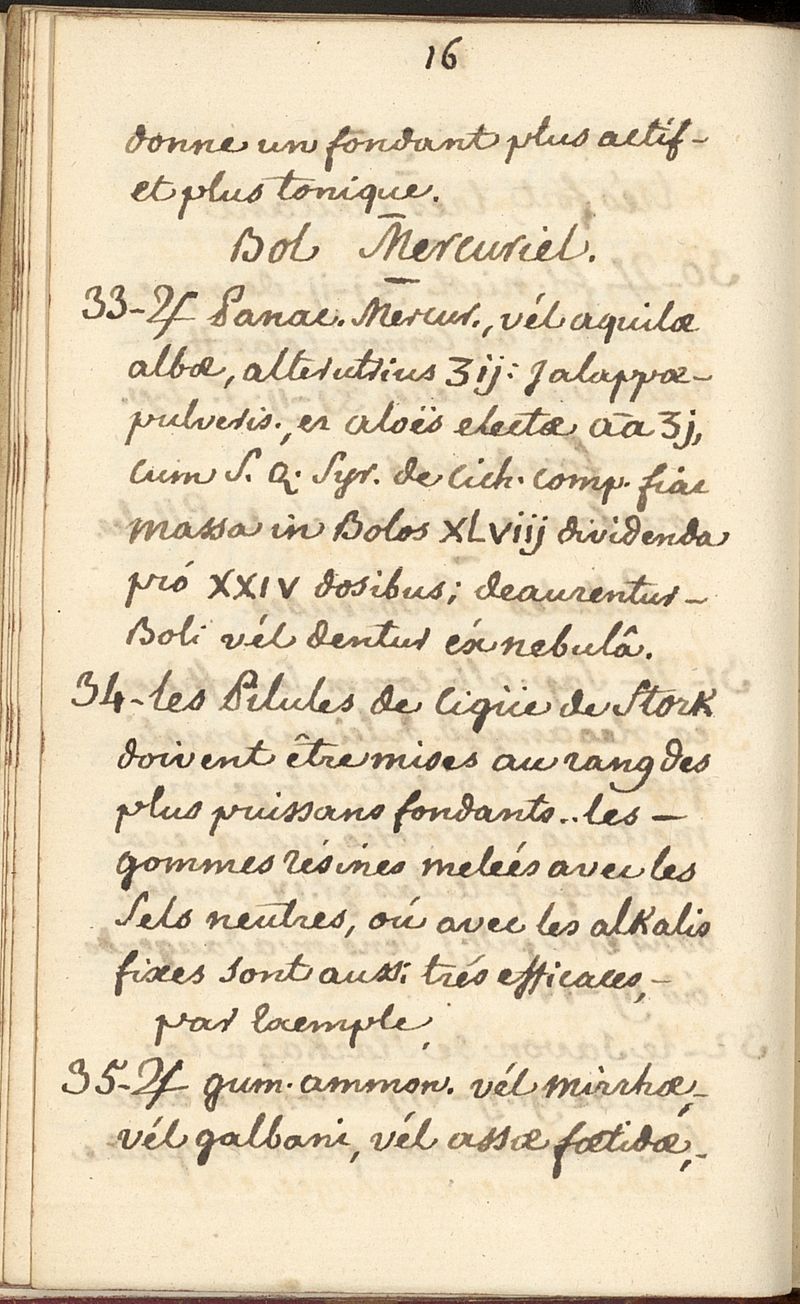 16
donne un fondant plus actif-
et plus tonique.
Bol Mercuriel.
33-♃ Panac. Mercur., vél aquilæ
albæ, alterutrius ʒij: Jalappæ-
pulveris., et aloës electæ āa ʒj,
cum S. Q. Syr. de Cich. comp. fiat
massa in Bolos XLViij dividenda
pró XXIV dosibus; deaurentur-
Boli vél dentur éx nebulâ.
34-les Pilules de Cigüe de Stork
doivent être mises au rang des
plus puissans fondants..les-
gommes résines meleés avec les
Sels neutres, oú avec les alkalis
fixes sont aussi trés efficaces,-
par Exemple,
35-♃ gum. ammon. vél mirrhæ,-
vél galbani, vél assæ fœtidæ,-